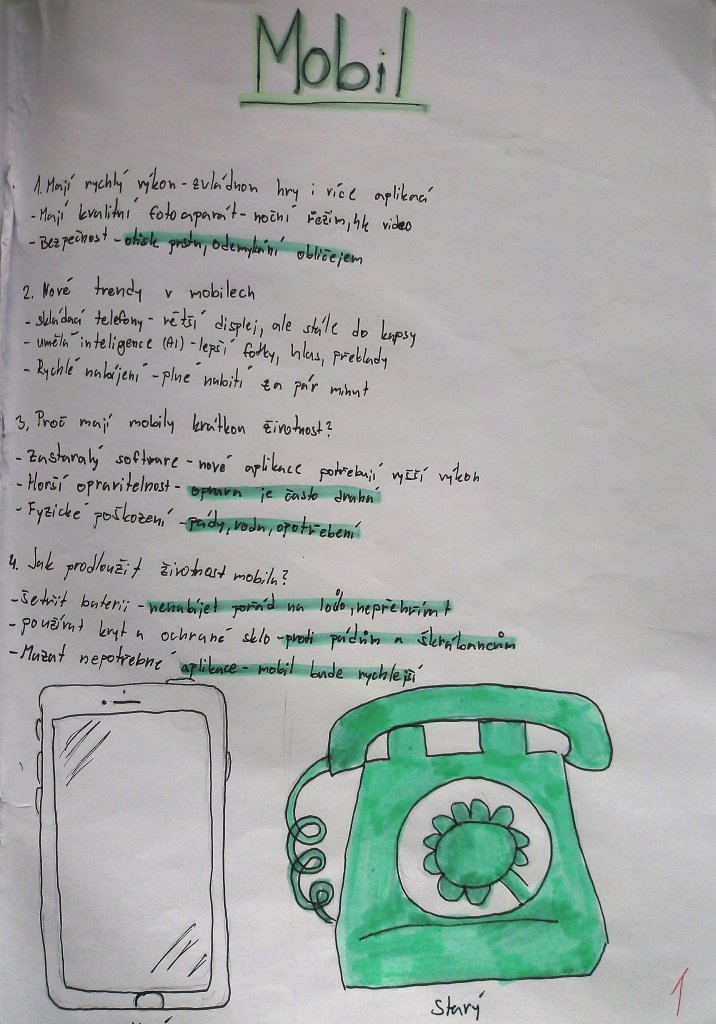 Mobil
1. Mají rychlý výkon - zvládnou hry i více aplikací
- Mají kvalitní fotoaparát - noční režim, hk video
- Bezpečnost - otisk prstu, odemykání obličejem
2. Nové trendy v mobilech
- skládací telefony - větší displej, ale stále do kapsy
- umělá inteligence (AI) - lepší fotky, hlas, překlady
- Rychlé nabíjení - plné nabití za pár minut
3, Proč mají mobily krátkou životnost?
- Zastaralý software - nové aplikace potřebují vyšší výkon
- Horší opravitelnost - oprava je často drahá
- Fyzické poškození - pády, voda, opotřebení
4. Jak prodloužit životnost mobilu?
- šetřit baterii - nenabíjet pořád na 100%, nepřehřívat
- používat kryt a ochrané sklo - proti pádům a škrábancům
- Mazat nepotřebné aplikace - mobil bude rychlejší
Starý
1